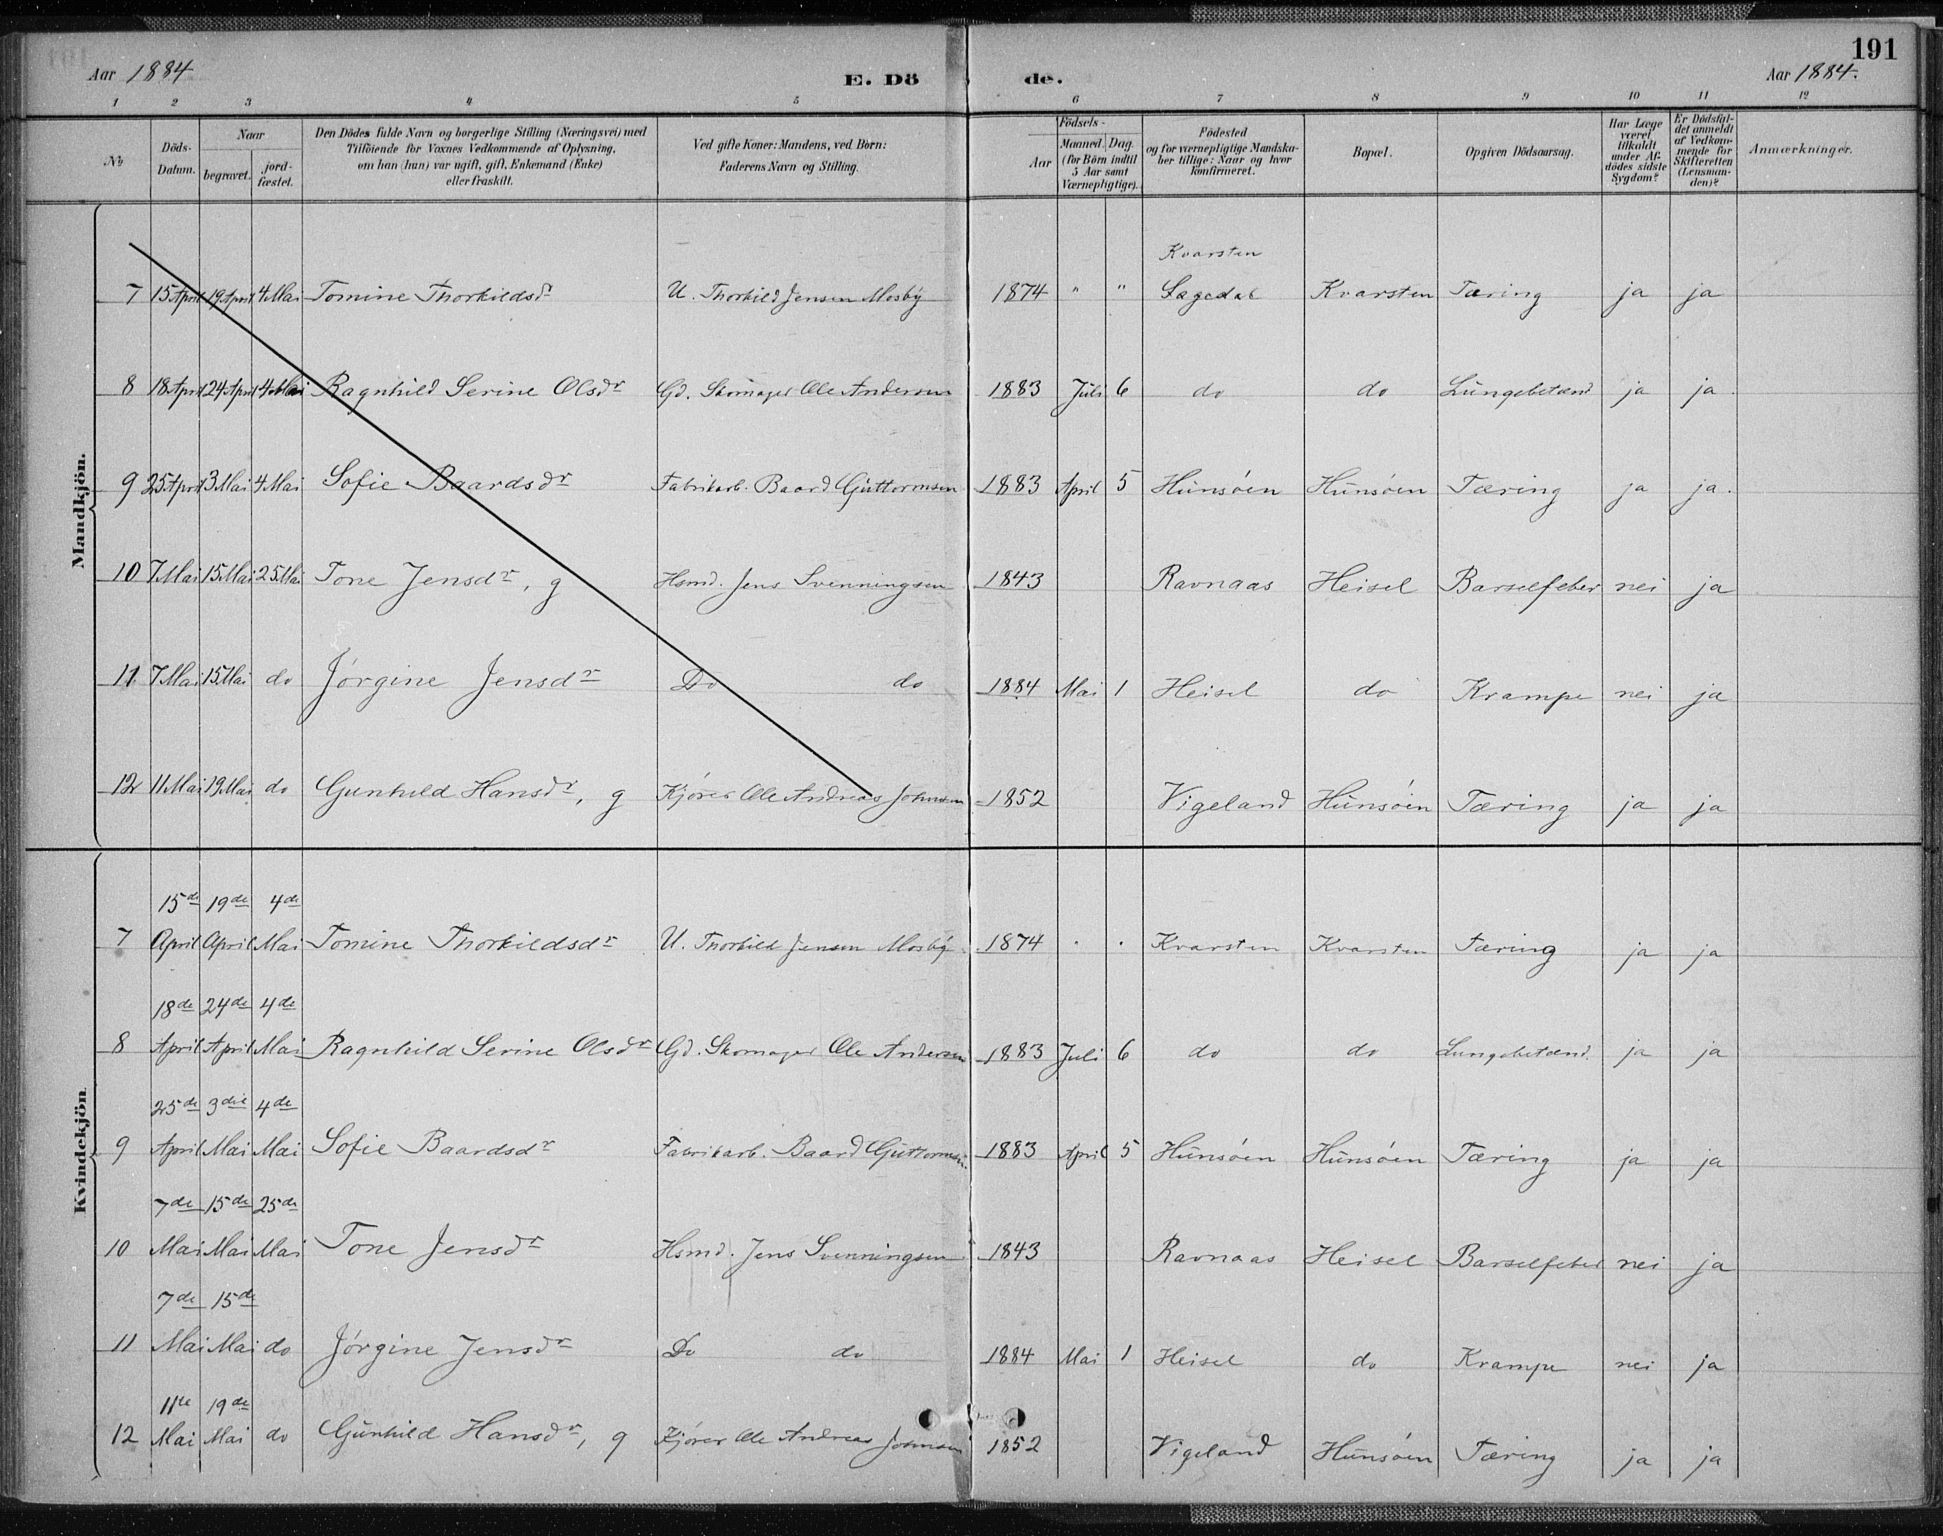 191
Aar 1884. E. Dö de. Aar 1884.
1 2 3 4 5 6 7 8 9 10 11 12
No
Döds-Datum.
Naar
begravet.
jordfæstet.
Den Dödes fulde Navn og borgerlige Stilling (Næringsvei) med
Tilföiende for Voxnes Vedkommende af Oplysning,
om han (hun) var ugift, gift, Enkemand (Enke)
eller fraskilt.
Ved gifte Koner: Mandens, ved Börn:
Faderens Navn og Stilling.
Födsels-
Aar
Maaned. Dag.
(for Börn indtil
5 Aar samt
Værnepligtige).
Födested
og for værnepligtige Mandskaber tillige: Naar og hvor
konfirmeret.
Bopæl.
Opgiven Dödsaarsag.
Har Læge
været
tilkaldt
under Afdödes sidste
Sygdom?
Er Dödsfaldet anmeldt
af Vedkommende for
Skifteretten
(Lensmanden)?
Anmærkninger.
Mandkjön.
Kvarsten
7 15 April 19 April 4 Mai Tomine Thorkildsdr U. Thorkild Jensen Mosby 1874 " " Kvarsten Tæring ja ja
8 18 April 24 April 4 Mai Ragnhild Serine Olsdr Gd. Skomager Ole Andersen 1883 Juli 6 do do Lungebetænd ja ja.
9 25 April 3 Mai 4 Mai Sofie Baardsdr Fabrikarb. Baard Guttormsen 1883 April 5 Hunsöen Hunsöen Tæring ja ja.
10 7 Mai 15 Mai 25 Mai Tone Jensdr, g Hsmd. Jens Svenningsen 1843 Ravnaas Heisel Barselfeber nei ja
11 7 Mai 15 Mai do Jörgine Jensdr Do do 1884 Mai 1 Heisel do Krampe nei ja
12 11 Mai 19 Mai do Gunhild Hansdr, g Kjörer Ole Andreas Johnsen 1852 Vigeland Hunsöen Tæring ja ja
Kvindekjön
15de 19de 4de
7 April April Mai Tomine Thorkildsdr U. Thorkild Jensen Mosby 1874 . . Kvarsten Kvarsten Tæring ja ja
18de 24de 4de
8 April April Mai Ragnhild Serine Olsdr Gd. Skomager Ole Andersen 1883 Juli 6 do do Lungebetænd. ja ja
25de 3die 4de
9 April Mai Mai Sofie Baardsdr Fabrikarb. Baard Guttormsen 1883 April 5 Hunsöen Hunsöen Tæring ja ja
7de 15de 25de
10 Mai Mai Mai Tone Jensdr Hsmd. Jens Svenningsen 1843 Ravnaas Heisel Barselfeber nei ja
7de 15de
11 Mai Mai do Jörgine Jensdr Do do 1884 Mai 1 Heisel do Krampe nei ja
11te 19de
12 Mai Mai do Gunhild Hansdr, g Kjörer Ole Andreas Johnsen 1852 Vigeland Hunsöen Tæring ja ja